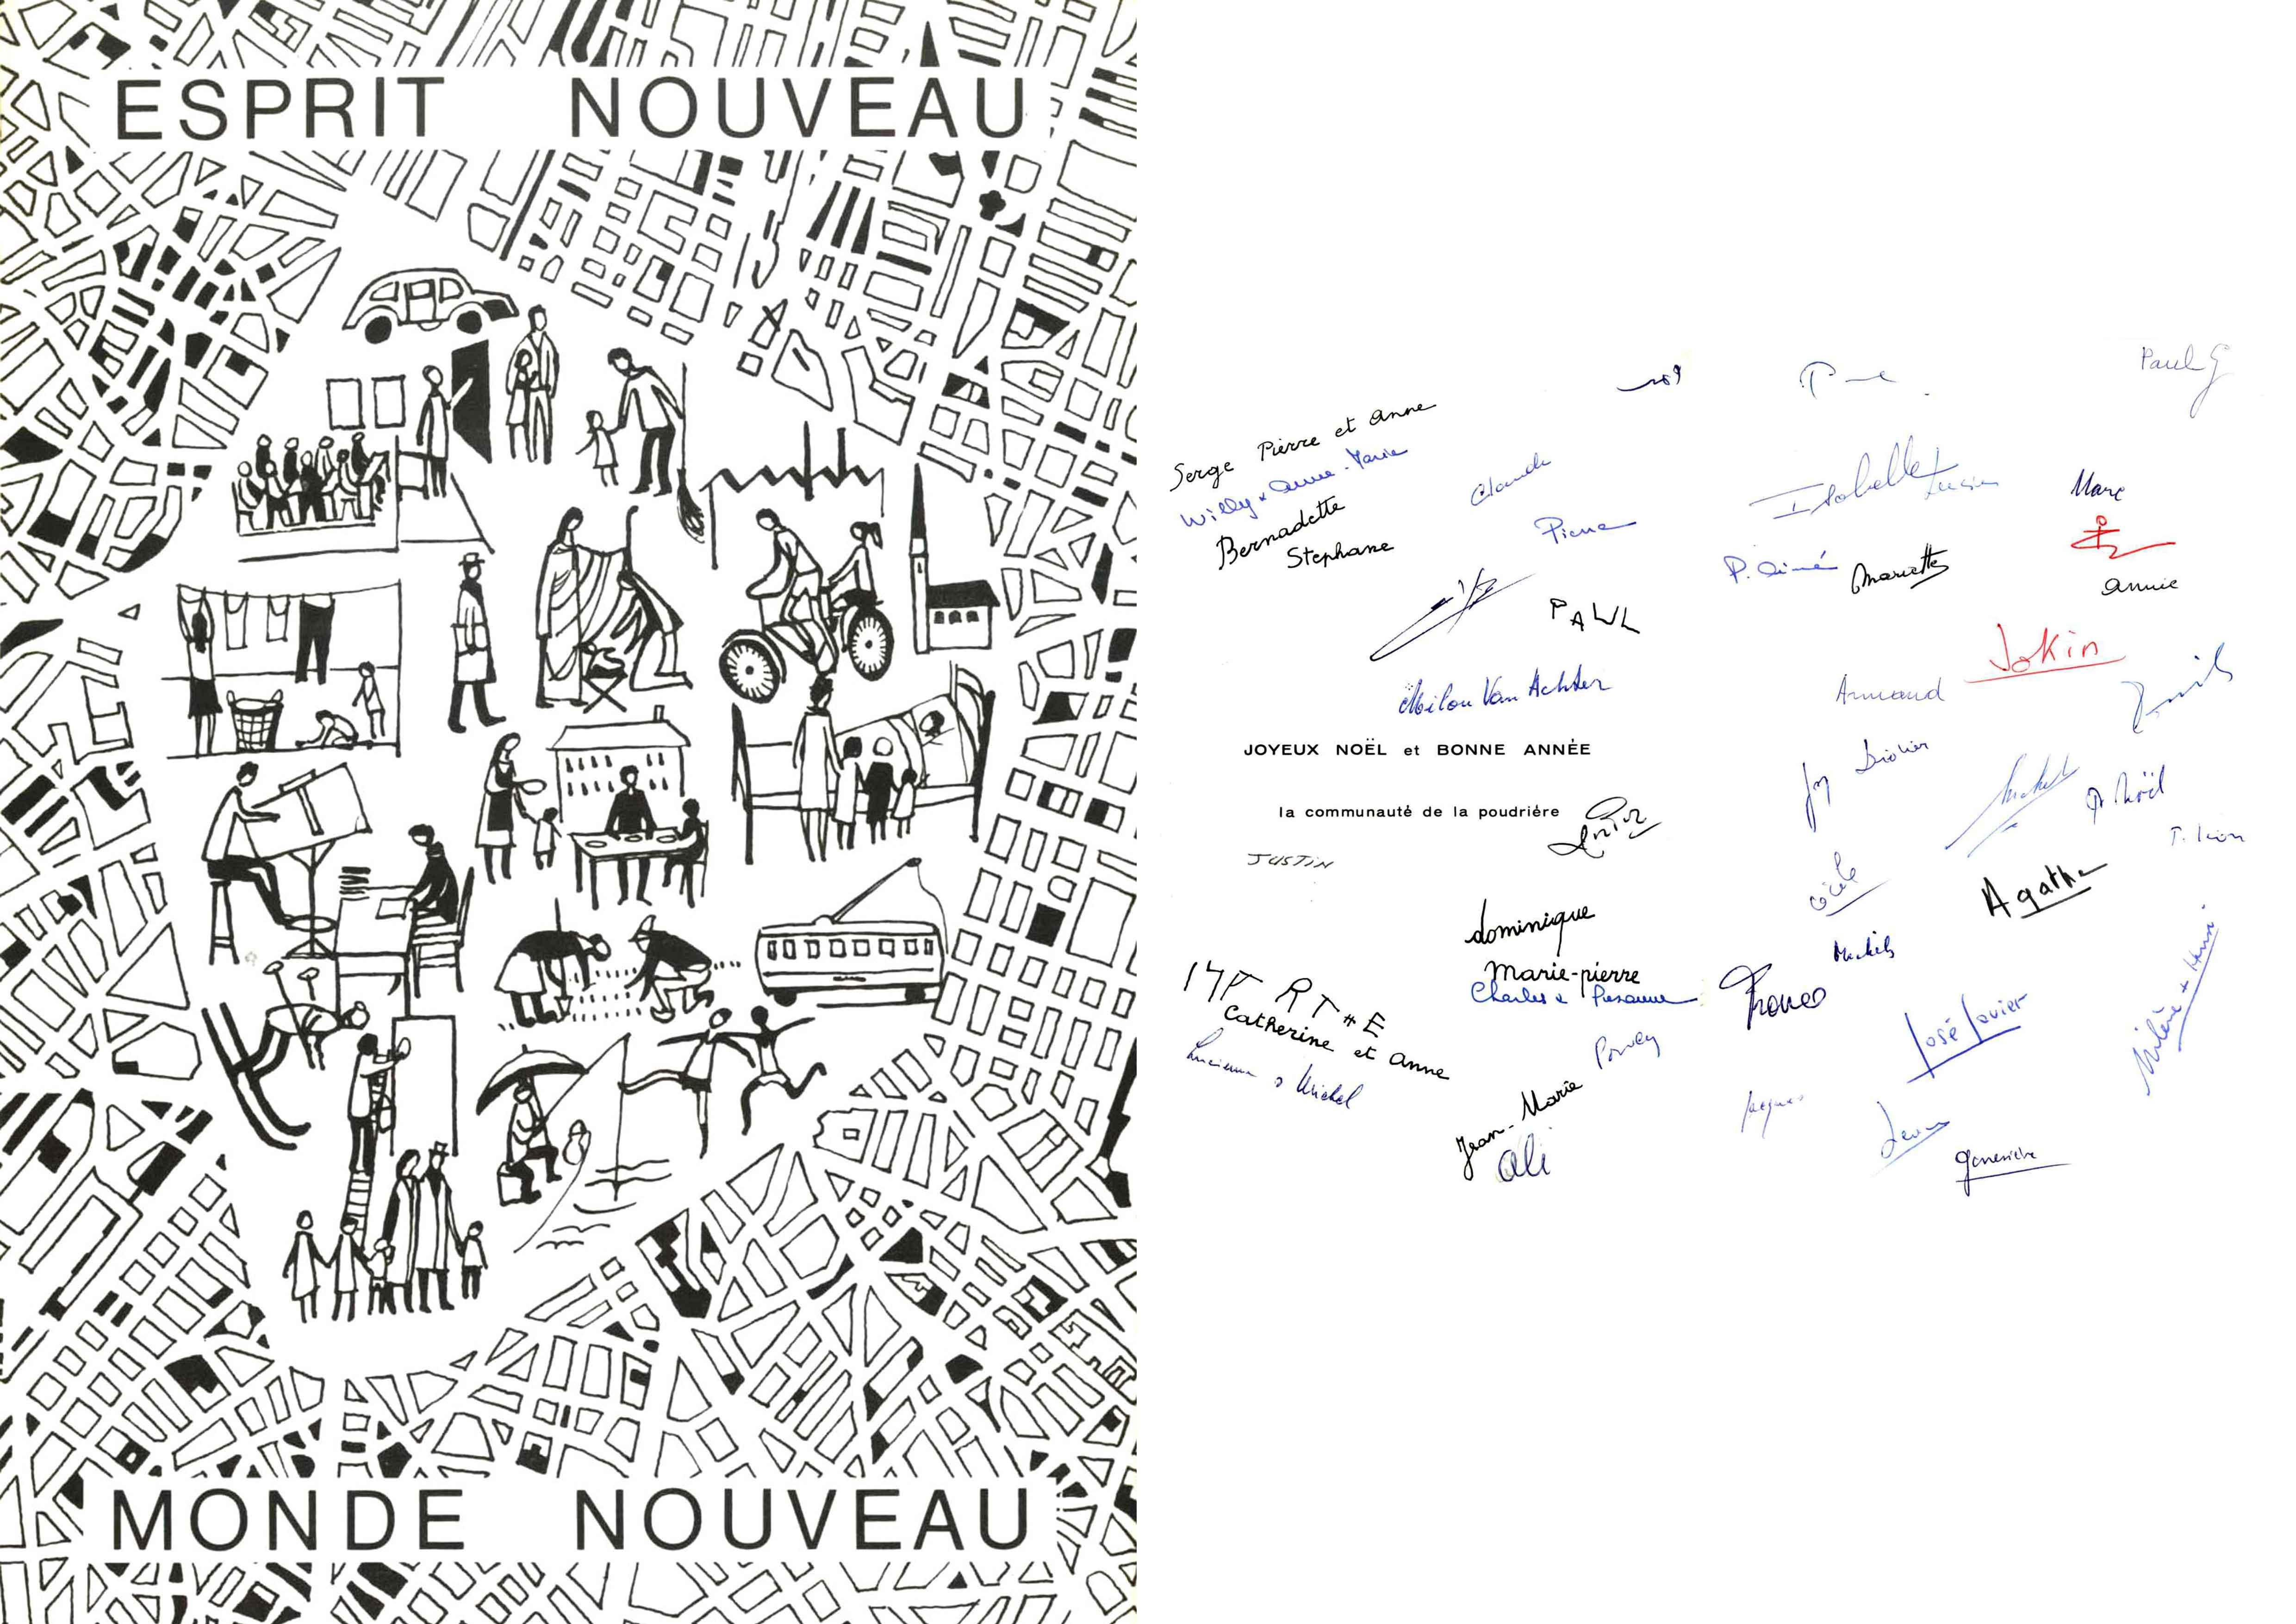 ESPRIT NOUVEAU
MONDE NOUVEAU
Paul G
Serge Pierre et Anne
Willy & Anne-Marie
Bernadette
Stephane
Claude
Pierre
PAUL
Milou Van Achter
JOYEUX NOËL et BONNE ANNÉE
la communauté de la poudrière
JUSTIN
dominique
Marie-pierre
Charles &
Catherine et Anne
Lucienne & Michel
Jean-Marie
Ali
Isabelle
Lucien
Marc
P. Aimé
Mariette
Annie
Jokin
Armand
Emile
Michel
P. Noël
T. Léon
Cécile
Agatha
Michel
José Javier
Jacques
Geneviève